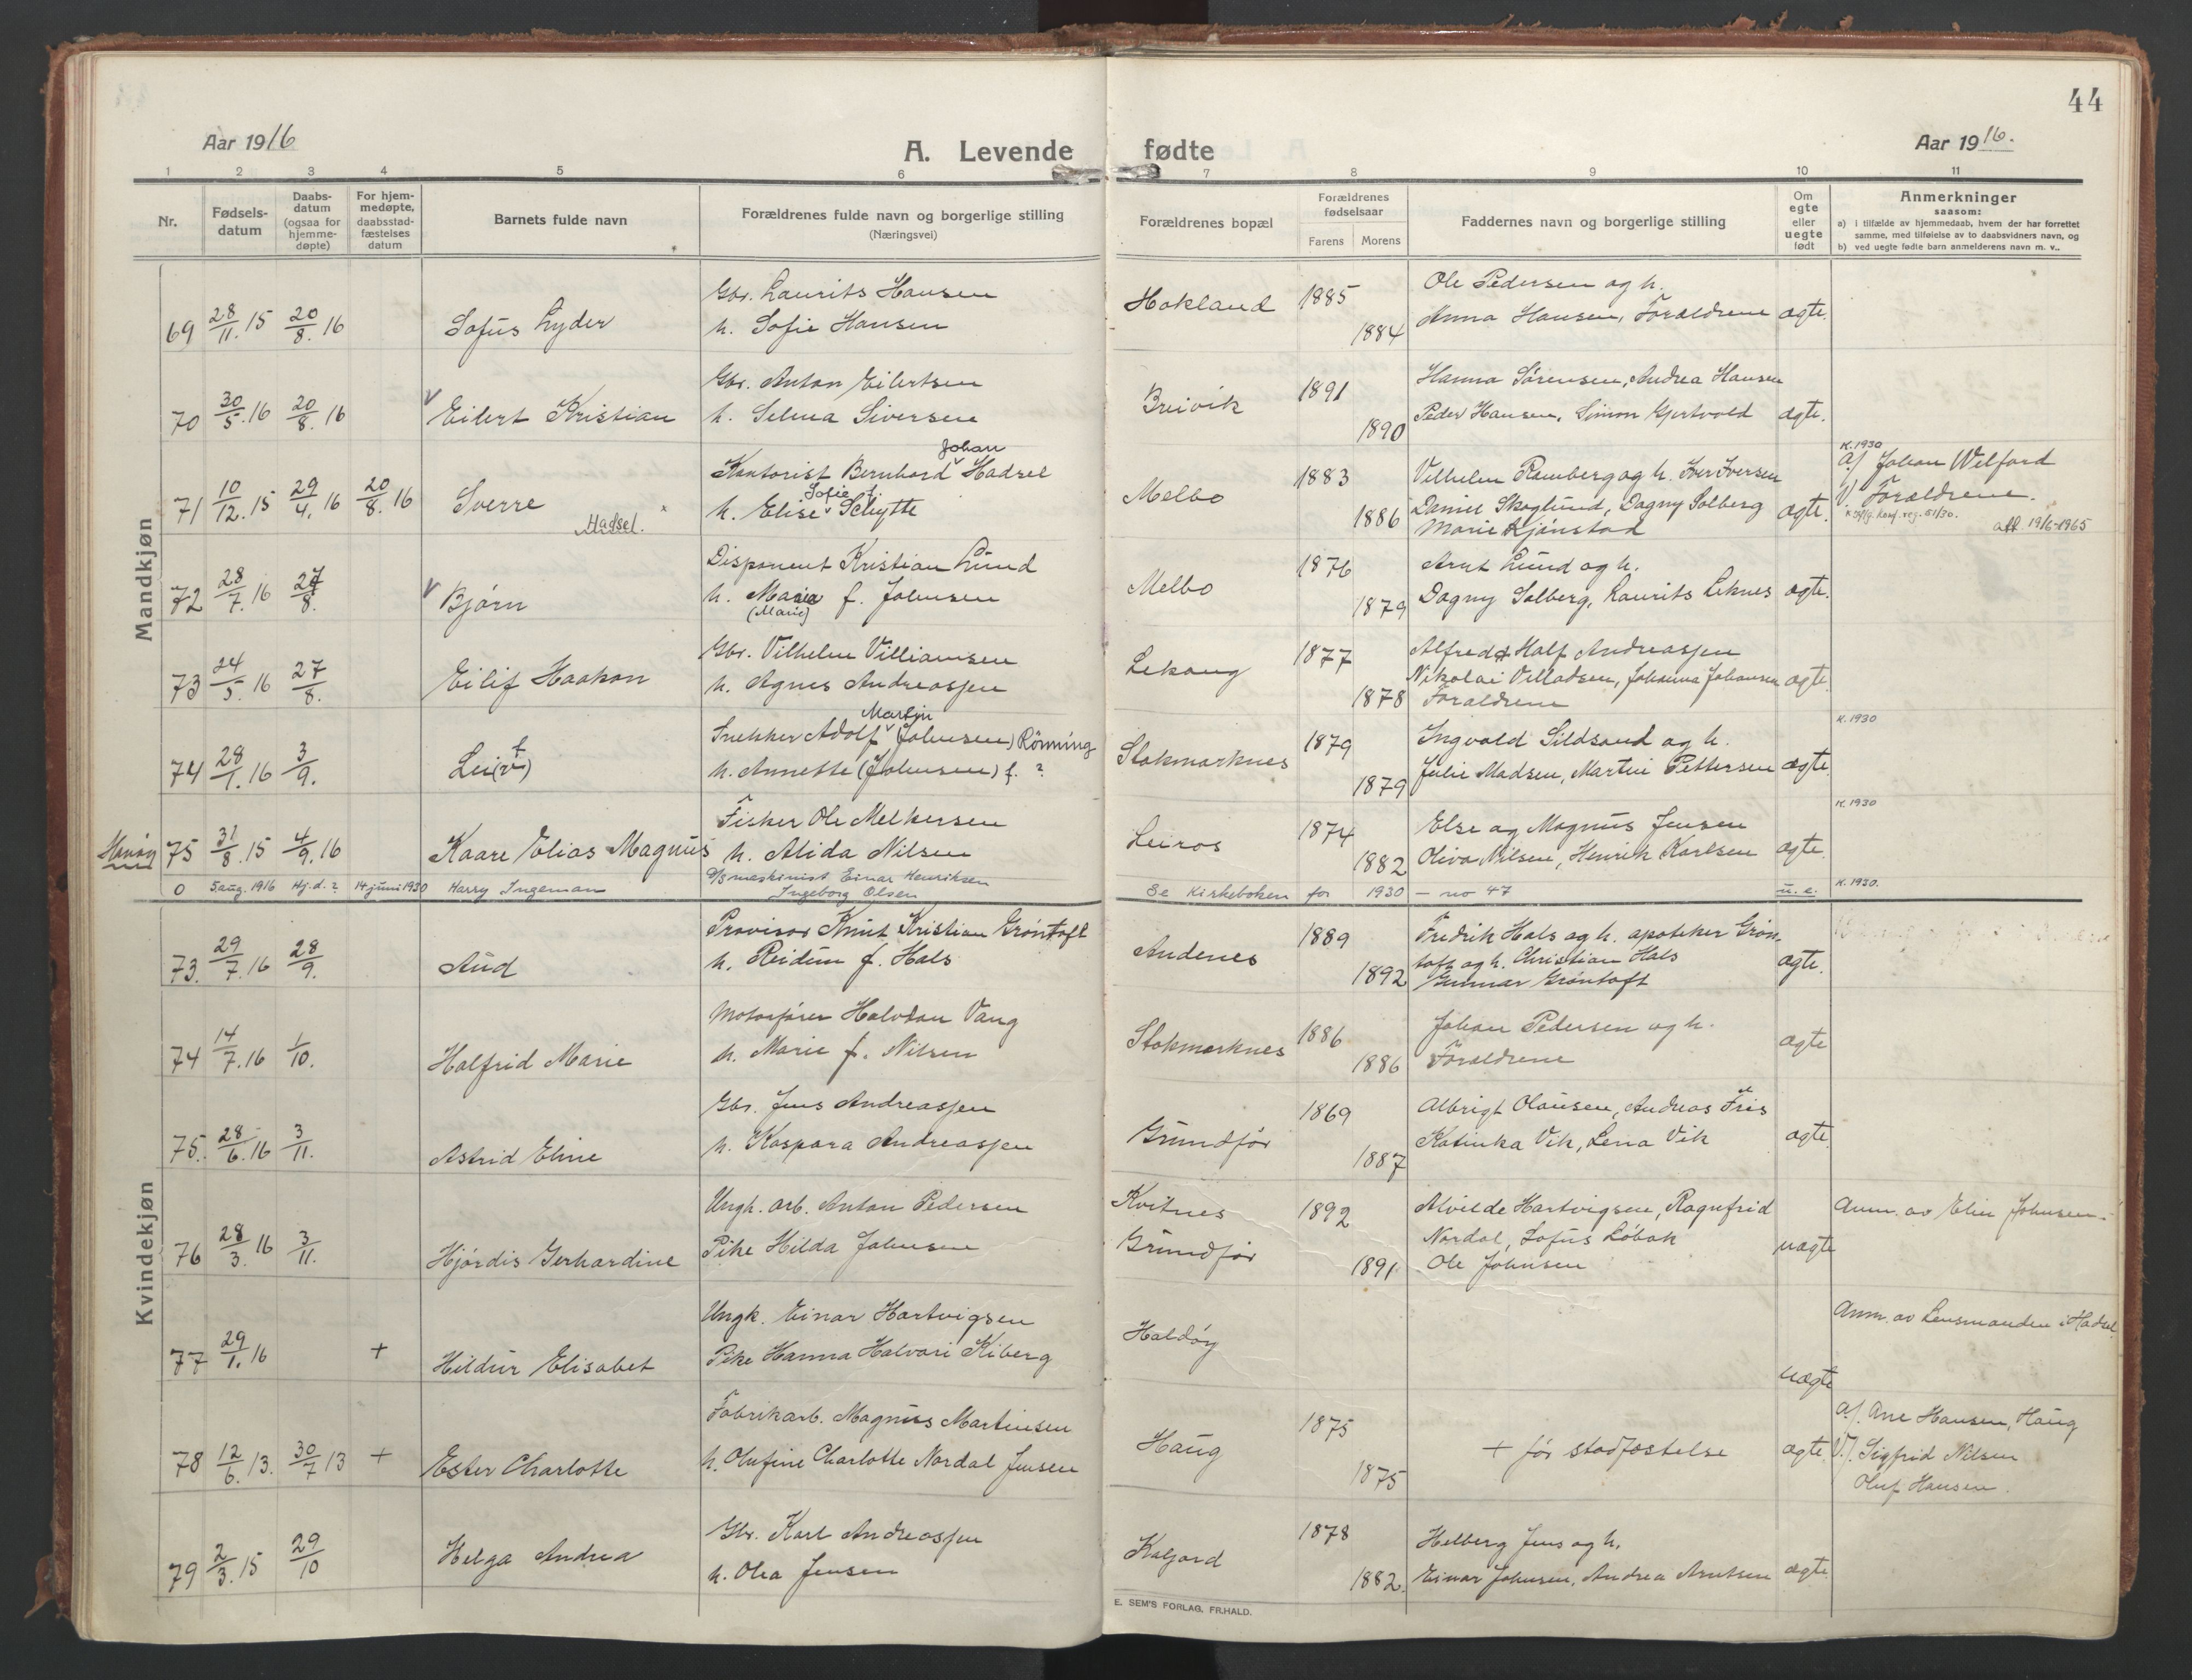 44
Aar 1916
A. Levende fødte
Aar 1916.
1 2 3 4 5 6 7 8 9 10 11
Nr.
Fødsels-
datum
Daabs-
datum
(ogsaa for
hjemme-
døpte)
For hjem-
medøpte,
daabsstad-
fæstelses
datum
Barnets fulde navn
Forældrenes fulde navn og borgerlige stilling
(Næringsvei)
Forældrenes bopæl
Forældrenes
fødselsaar
Farens Morens
Faddernes navn og borgerlige stilling
Om
egte
eller
uegte
født
Anmerkninger
saasom:
a) i tilfælde av hjemmedaab, hvem der har forrettet
samme, med tilføielse av to daabsvidners navn, og
b) ved uegte fødte barn anmelderens navn m. v..
Mandkjøn
69 28/11. 15 20/8. 16 Sofus Lyder
Gbr. Laurits Hansen
h. Sofie Hansen
Hokland 1885 1884
Ole Pedersen og h.
Anna Hansen, Forældrene ægte.
70 30/5. 16 20/8. 16 V Eilert Kristian
Gbr. Anton Eilertsen
h. Selma Siversen
Breivik 1891 1890
Hanna Sørensen, Andrea Hansen
Peder Hansen, Simon Gjertvold ægte.
71 10/12. 15 29/4. 16 20/8. 16 Sverre
Hadsel.
Johan
Kontorist Bernhard Hadsel
Sofie f.
h. Elise Schytte
Melbo 1883 1886
Vilhelm Ramberg og h. Iver Iversen
Daniel Skoglund, Dagny Solberg
Marie Kjønstad
ægte.
K. 1930
a/ Johan Welfard
V. Forældrene.
att. 19/6-1965
72 28/7. 16 27/8. V Bjørn
Disponent Kristian Lund
h. Maria f. Johnsen
(Marie)
Melbo 1876 1879
Arnt Lund og h.
Dagny Solberg, Laurits Leknes ægte.
73 24/5. 16 27/8. Eilif Haakon
Gbr. Vilhelm Villiamsen
h. Agnes Andreassen
Lekang 1877 1878
Alfred & Half Andreassen
Nikolai Villadsen, Johanna Johansen
Forældrene
ægte.
74 28/1. 16 3/9. Lei(v) f
Martin
Snekker Adolf (Johnsen) Rönning
h. Annette (Johnsen) f. ?
Stokmarknes 1879 1879
Ingvald Sildsand og h.
Julie Madsen, Martin Pettersen ægte.
K. 1930
75 31/8. 15 4/9. 16 Kaare Elias Magnus
Fisker Ole Melkersen
h. Alida Nilsen
Leiros 1874 1882
Else og Magnus Jensen
Oliva Nilsen, Henrik Karlsen ægte.
K. 1930
0 5 aug. 1916 Hj.d. ? 14 juni 1930 Harry Ingeman
D/S maskinist Einar Henriksen
Ingeborg Olsen
Se Kirkeboken for 1930 — no 47 u. e. K. 1930.
Kvindekjøn
73. 29/7. 16 28/9. Aud
Provisor Knut Kristian Grøntoft
h. Reidun f. Hals
Andenes 1889 1892
Fredrik Hals og h. apoteker Grøn-
toft og h. Christian Hals
Gunnar Grøntoft
ægte.
74 14/7. 16 1/10. Halfrid Marie
Motorfører Halvdan Vang
h. Marie f. Nilsen
Stokmarknes 1886 1886
Johan Pedersen og h.
Forældrene
ægte
75. 28/6. 16 3/11. Astrid Eline
Gbr. Jens Andreassen
h. Kaspara Andreassen
Grundfjør 1869 1887
Albrigt Olausen, Andreas Friis
Katinka Vik, Lena Vik
ægte
76 28/3. 16 3/11. Hjørdis Gerhardine
Ungk. arb. Anton Pedersen
Pike Hilda Johnsen
Kvitnes
Grundfjør
1892 1891
Alvilde Hartvigsen, Ragnfrid
Nordal, Sofus Løbak
Ole Johnsen
uægte
Anm. av Elen Johnsen.
77 29/1. 16 + Hildur Elisabet
Ungk. Einar Hartvigsen
Pike Hanna Halvari Kiberg
Haldøy
uægte
Anm. av Lensmanden i Hadsel
78 12/6. 13. 30/7 13 + Ester Charlotte
Fabrikarb. Magnus Martinsen
h. Olufine Charlotte Nordal Jensen
Haug 1875 1875
+ før stadfæstelse ægte
a/. Ane Hansen, Haug
V/. Sigfrid Nilsen
Oluf Hansen.
79 2/3. 15 29/10 Helga Andrea
Gbr. Karl Andreassen
h. Olea Jensen
Kaljord 1878 1882.
Helberg Jens og h.
Einar Johnsen, Andrea Arntsen ægte.
E. SEM'S FORLAG, FR.HALD.